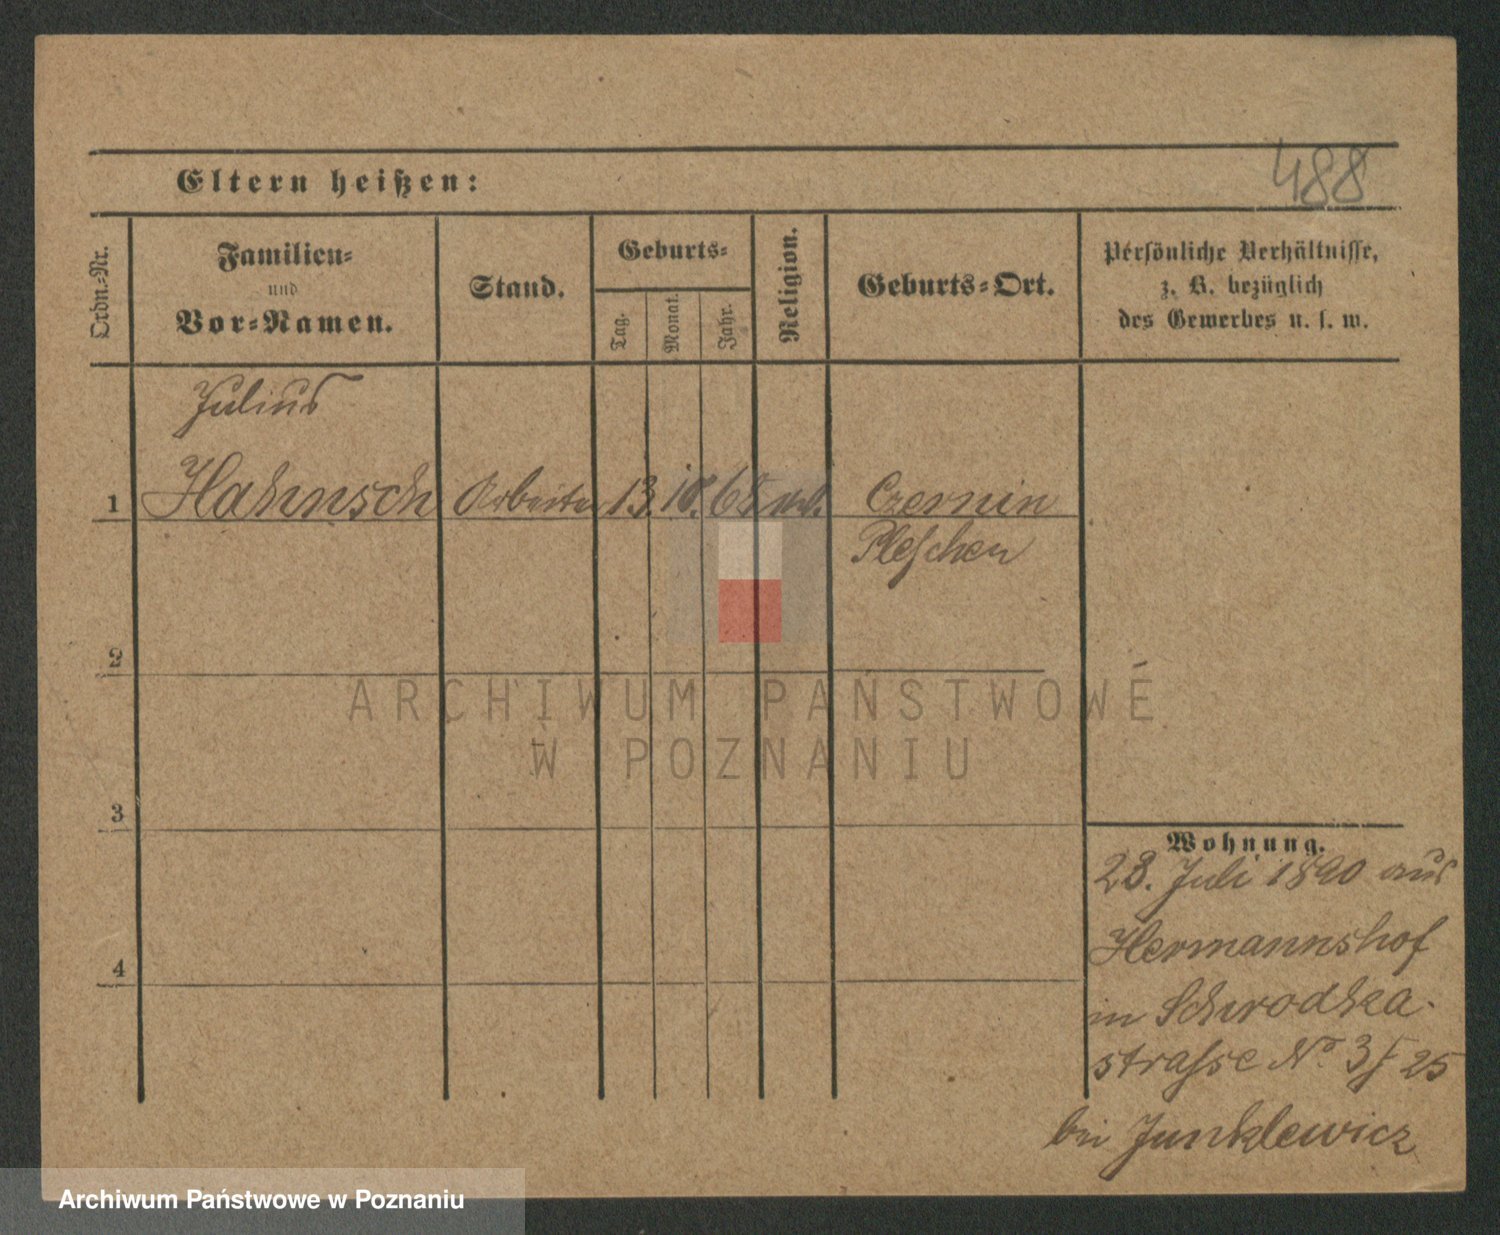 488
Eltern heißen:
Ordn.-Nr.
Familien-
und
Vor-Namen.
Stand.
Geburts-
Tag.
Monat.
Jahr.
Religion.
Geburts-Ort.
Persönliche Verhältnisse,
z. B. bezüglich
des Gewerbes u. s. w.
Julius
1 Hahnsch Arbeiter 13. 10. 68 Czernin
Pleschen
2
3
4
Wohnung.
28. Juli 1890 aus
Hermannshof
in Schrodka-
strasse No. 3/ 25
bei Junklewicz
ARCHIWUM PAŃSTWOWE
W POZNANIU
Archiwum Państwowe w Poznaniu